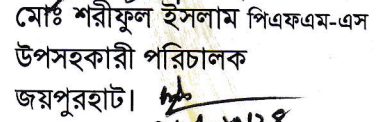 মোঃ শরীফুল ইসলাম পিএফএম-এস
উপসহকারী পরিচালক
জয়পুরহাট।